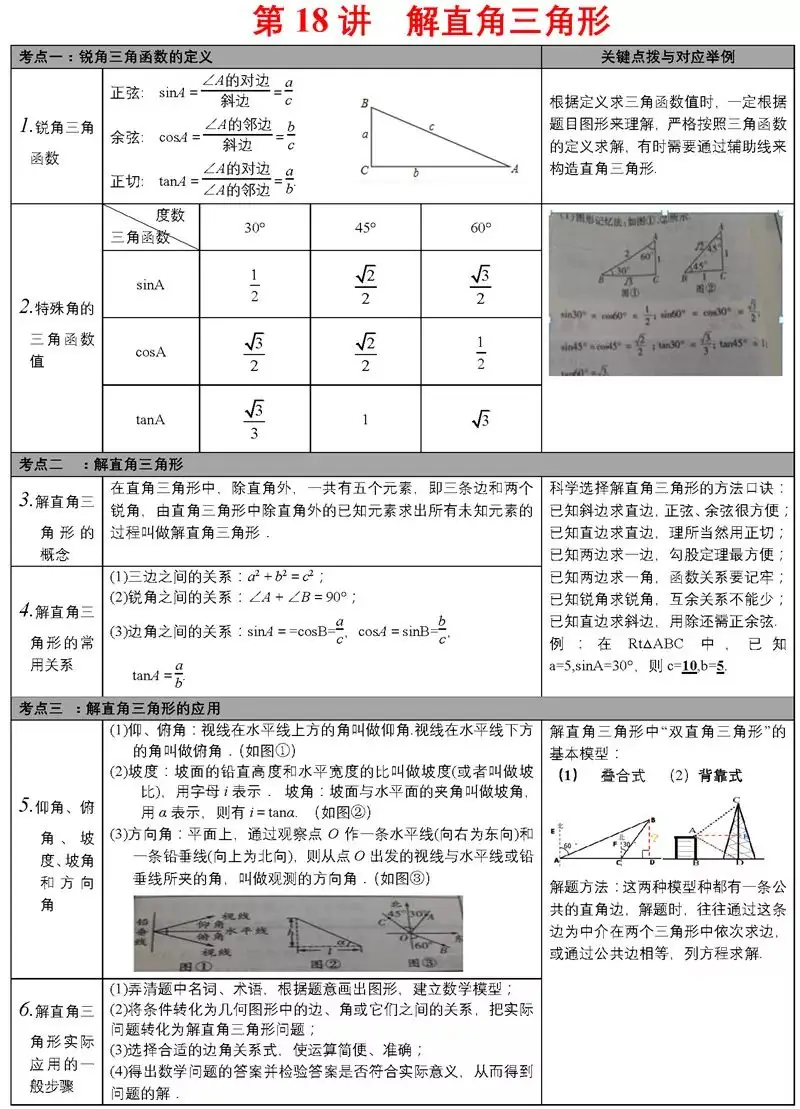 第 18 讲 解直角三角形
考点一：锐角三角函数的定义
关键点拨与对应举例
1.锐角三角
函数
正弦: sinA=∠A的对边/斜边=a/c
余弦: cosA=∠A的邻边/斜边=b/c
正切: tanA=∠A的对边/∠A的邻边=a/b.
B
a
c
C
b
A
根据定义求三角函数值时，一定根据
题目图形来理解，严格按照三角函数
的定义求解，有时需要通过辅助线来
构造直角三角形.
2.特殊角的
三角函数
值
度数
三角函数
30°
45°
60°
sinA
1/2
√2/2
√3/2
cosA
√3/2
√2/2
1/2
tanA
√3/3
1
√3
(1)图形记忆法:如图①,②所示.
A
2
60°
1
30°
B
√3
C
图①
A
√2
45°
1
45°
B
1
C
图②
sin30° = cos60° = 1/2; sin60° = cos30° = √3/2;
sin45°=cos45°= √2/2 ; tan30° = √3/3; tan45° = 1;
tan60°=√3.
考点二 ：解直角三角形
3.解直角三
角形的
概念
在直角三角形中，除直角外，一共有五个元素，即三条边和两个
锐角，由直角三角形中除直角外的已知元素求出所有未知元素的
过程叫做解直角三角形．
科学选择解直角三角形的方法口诀：
已知斜边求直边，正弦、余弦很方便；
已知直边求直边，理所当然用正切；
已知两边求一边，勾股定理最方便；
已知两边求一角，函数关系要记牢；
已知锐角求锐角，互余关系不能少；
已知直边求斜边，用除还需正余弦.
例：在 Rt△ABC 中，已知
a=5,sinA=30°，则 c=10,b=5.
4.解直角三
角形的常
用关系
(1)三边之间的关系：a²+b²=c²；
(2)锐角之间的关系：∠A+∠B=90°；
(3)边角之间的关系：sinA==cosB=a/c，cosA=sinB=b/c，
tanA=a/b.
考点三 ：解直角三角形的应用
5.仰角、俯
角、坡
度、坡角
和方向
角
(1)仰、俯角：视线在水平线上方的角叫做仰角.视线在水平线下方
的角叫做俯角．（如图①）
(2)坡度：坡面的铅直高度和水平宽度的比叫做坡度(或者叫做坡
比)，用字母 i 表示． 坡角：坡面与水平面的夹角叫做坡角，
用 α 表示，则有 i=tanα. （如图②）
(3)方向角：平面上，通过观察点 O 作一条水平线(向右为东向)和
一条铅垂线(向上为北向)，则从点 O 出发的视线与水平线或铅
垂线所夹的角，叫做观测的方向角．（如图③）
铅垂线
视线
仰角
水平线
俯角
视线
图①
h
α
l
图②
北
45°
30°
A
C
O
东
60°
B
图③
解直角三角形中“双直角三角形”的
基本模型：
（1） 叠合式 （2）背靠式
E
北
60°
A
F
北
30°
C
B
?
D
C
A
E
B
D
解题方法：这两种模型种都有一条公
共的直角边，解题时，往往通过这条
边为中介在两个三角形中依次求边，
或通过公共边相等，列方程求解.
6.解直角三
角形实际
应用的一
般步骤
(1)弄清题中名词、术语，根据题意画出图形，建立数学模型；
(2)将条件转化为几何图形中的边、角或它们之间的关系，把实际
问题转化为解直角三角形问题；
(3)选择合适的边角关系式，使运算简便、准确；
(4)得出数学问题的答案并检验答案是否符合实际意义，从而得到
问题的解．